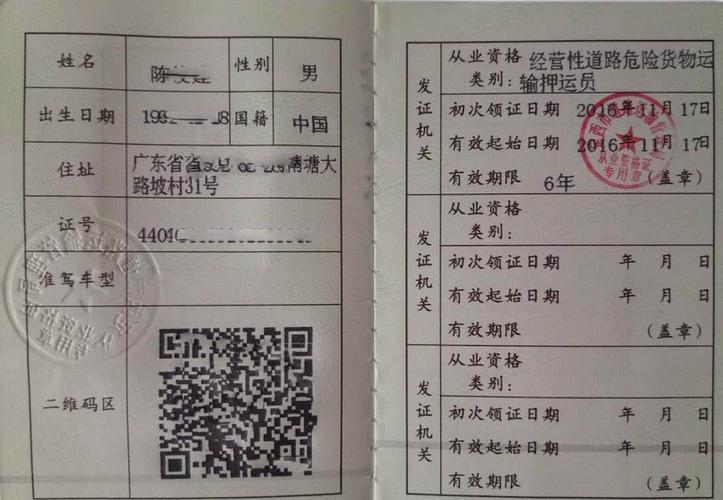 姓名 陈 性别 男
出生日期 198 8 国籍 中国
住址 广东省 南塘大
路坡村31号
证号 4404
准驾车型
二维码区
发证机关
从业资格 经营性道路危险货物运
类别: 输押运员
初次领证日期 2016年11月17日
有效起始日期 2016年11月17日
有效期限 6年 (盖章)
从业资格证
专用章
发证机关
从业资格
类别:
初次领证日期 年 月 日
有效起始日期 年 月 日
有效期限 (盖章)
发证机关
从业资格
类别:
初次领证日期 年 月 日
有效起始日期 年 月 日
有效期限 (盖章)